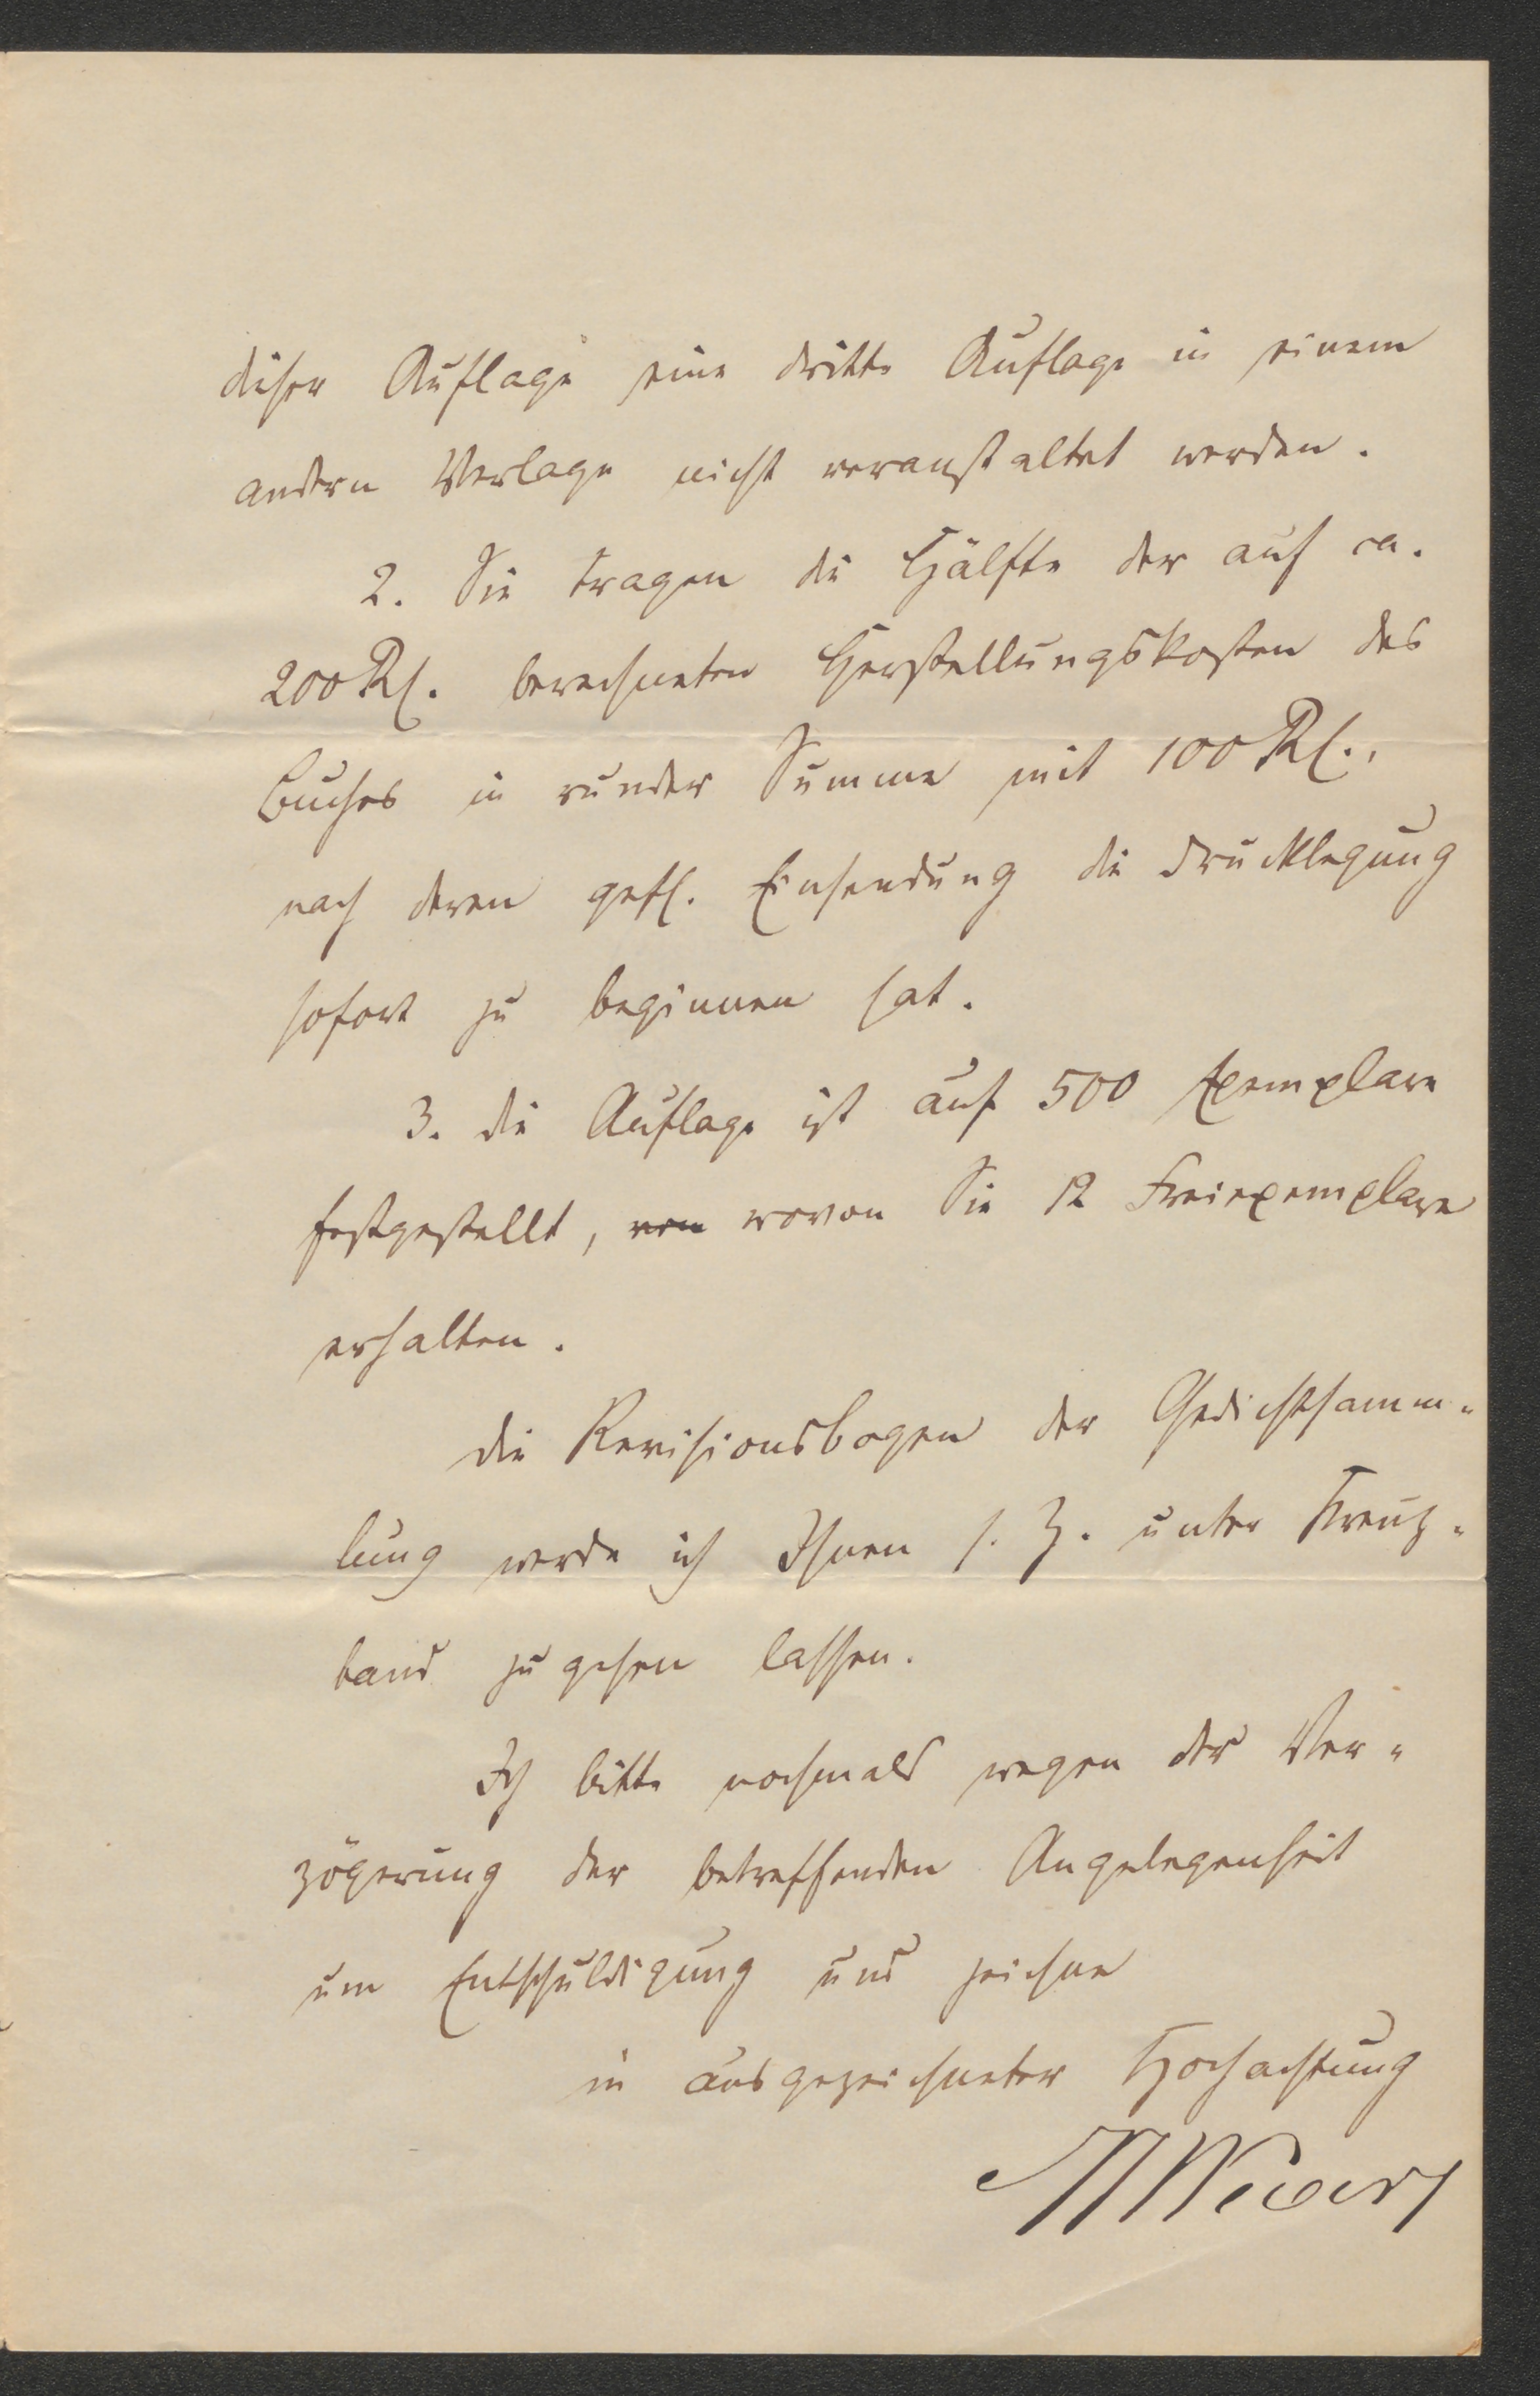 dieser Auflage eine dritte Auflage in einem
andern Verlage nicht veranstaltet werden.
2. Sie tragen die Hälfte der auf ca.
200 Rl. berechneten Herstellungskosten des
Buches in runder Summe mit 100 Rl.,
nach deren gefl. Einsendung die Drucklegung
sofort zu beginnen hat.
3. die Auflage ist auf 500 Exemplare
festgestellt, von wovon Sie 12 Freiexemplare
erhalten.
Die Revisionsbogen der Gedichtsamm-
lung werde ich Ihnen s. Z. unter Kreuz-
band zugehen lassen.
Ich bitte nochmals wegen der Ver-
zögerung der betreffenden Angelegenheit
um Entschuldigung und zeichne
in ausgezeichneter Hochachtung